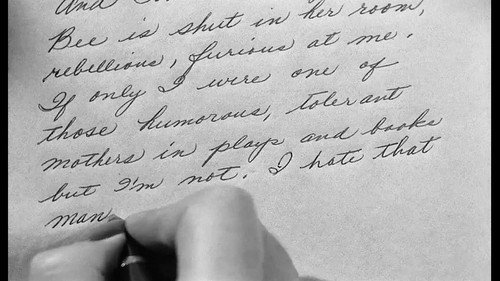 And
Bee is shut in her room,
rebellious, furious at me.
If only I were one of
those humorous, tolerant
mothers in plays and books
but I'm not. I hate that
man